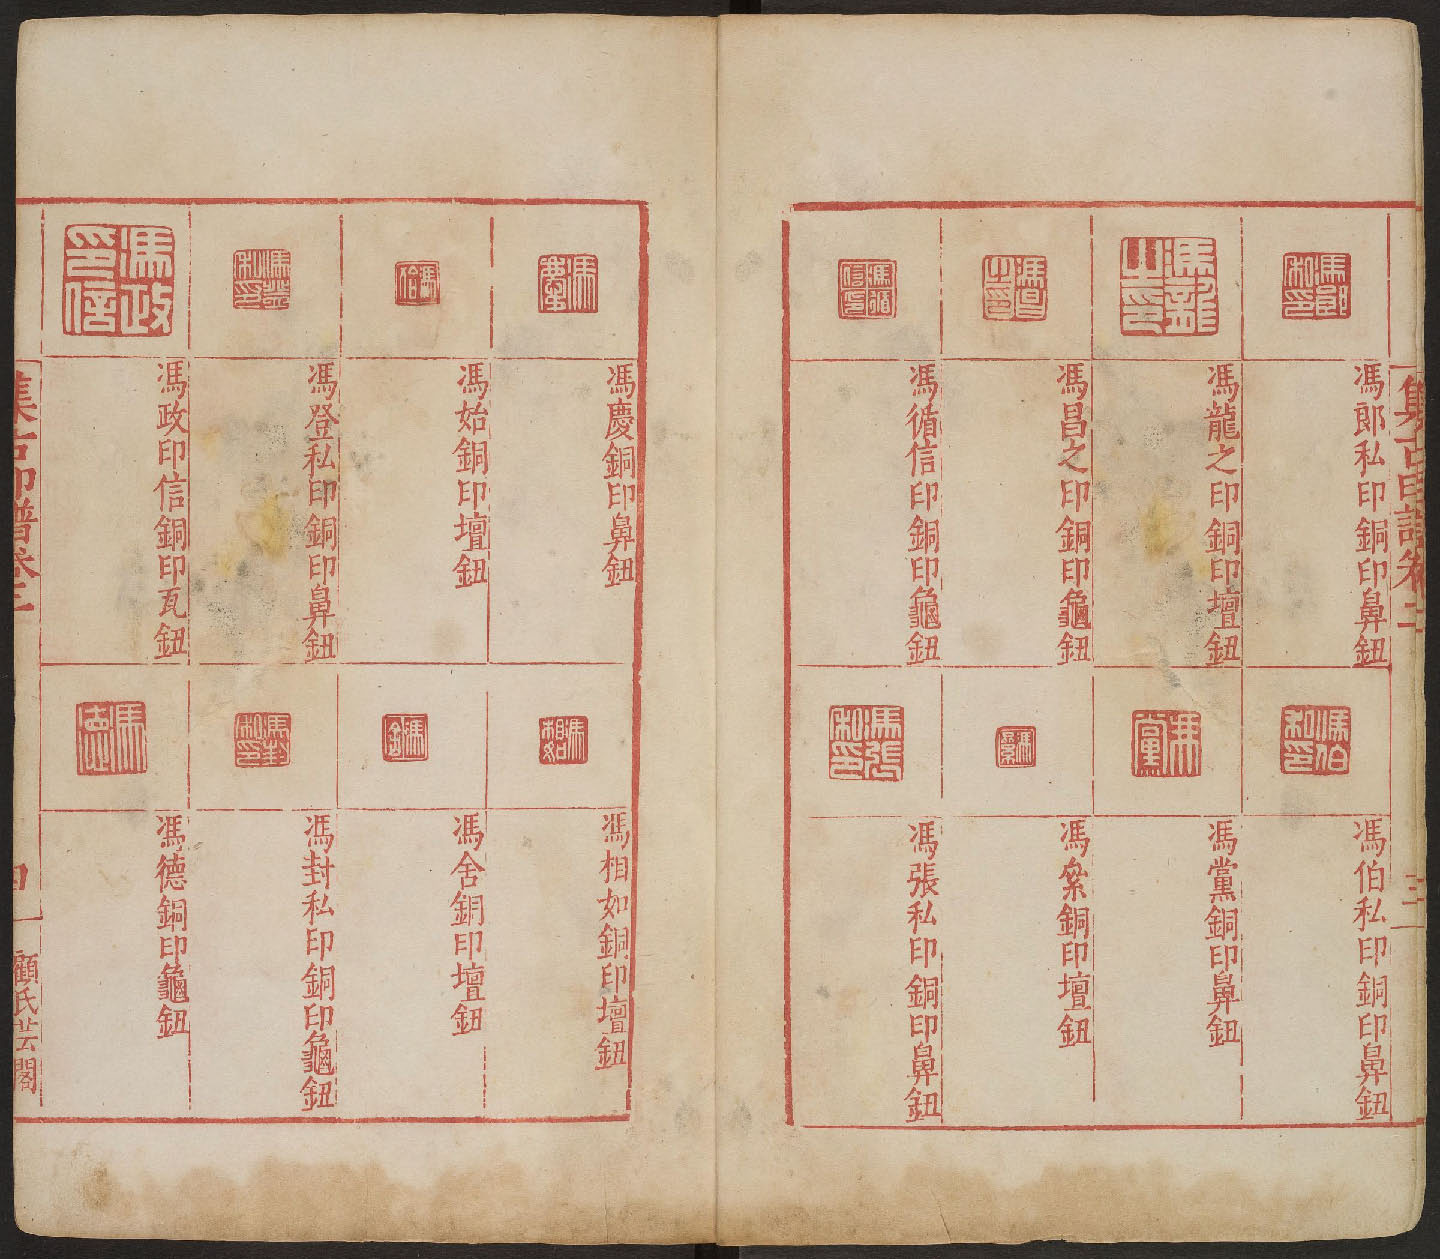 馮郎私印銅印鼻鈕
馮龍之印銅印壇鈕
馮昌之印銅印龜鈕
馮循信印銅印龜鈕
馮伯私印銅印鼻鈕
馮黨銅印鼻鈕
馮絫銅印壇鈕
馮張私印銅印鼻鈕
馮慶銅印鼻鈕
馮始銅印壇鈕
馮登私印銅印鼻鈕
馮政印信銅印瓦鈕
馮相如銅印壇鈕
馮舍銅印壇鈕
馮封私印銅印龜鈕
馮德銅印龜鈕
集古印譜卷三
四
顧氏芸閣